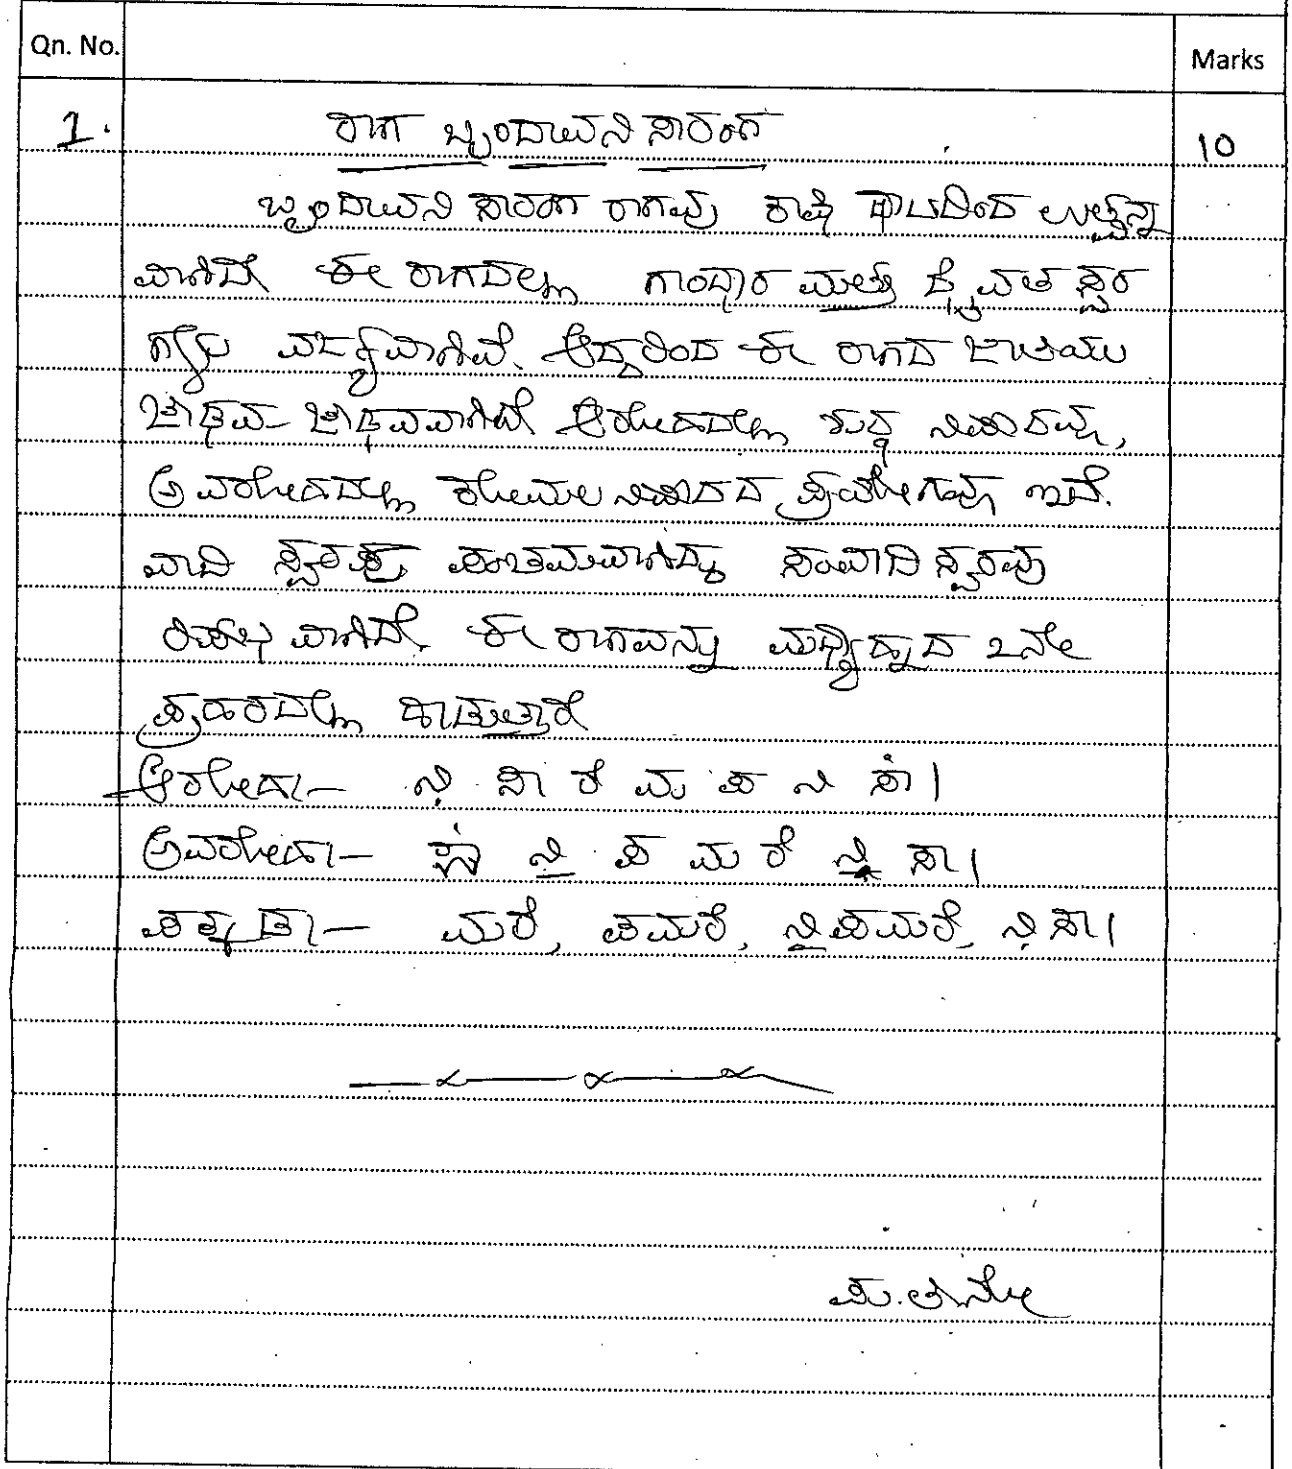 Qn. No. Marks
1. ರಾಗ ಬೃಂದಾವನಿ ಸಾರಂಗ 10
ಬೃಂದಾವನಿ ಸಾರಂಗ ರಾಗವು ಕಾಫಿ ಥಾಟದಿಂದ ಉತ್ಪನ್ನ
ವಾಗಿದೆ ಈ ರಾಗದಲ್ಲಿ ಗಾಂಧಾರ ಮತ್ತು ಧೈವತ ಸ್ವರ
ಗಳು ವರ್ಜ್ಯವಾಗಿವೆ. ಆದ್ದರಿಂದ ಈ ರಾಗದ ಜಾತಿಯು
ಔಡವ-ಔಡವವಾಗಿದೆ ಆರೋಹದಲ್ಲಿ ಶುದ್ಧ ನಿಷಾದವು,
ಅವರೋಹದಲ್ಲಿ ಕೋಮಲ ನಿಷಾದದ ಪ್ರಯೋಗವು ಇದೆ.
ವಾದಿ ಸ್ವರವು ಪಂಚಮವಾಗಿದ್ದು ಸಂವಾದಿ ಸ್ವರವು
ರಿಷಭ ವಾಗಿದೆ. ಈ ರಾಗವನ್ನು ಮಧ್ಯಾಹ್ನದ ೨ನೇ
ಪ್ರಹರದಲ್ಲಿ ಹಾಡುತ್ತಾರೆ
ಆರೋಹ:- ನಿ಼ ಸಾ ರೆ ಮ ಪ ನಿ ಸಾಂ|
ಅವರೋಹ:- ಸಾಂ ನಿ॒ ಪ ಮ ರೆ ನಿ಼ ಸಾ|
ಪಕ್ಕಡ:- ಮರೆ, ಪಮರೆ, ನಿ॒ಪಮರೆ, ನಿ಼ ಸಾ|
ಪು.ತಿ.ನೋ